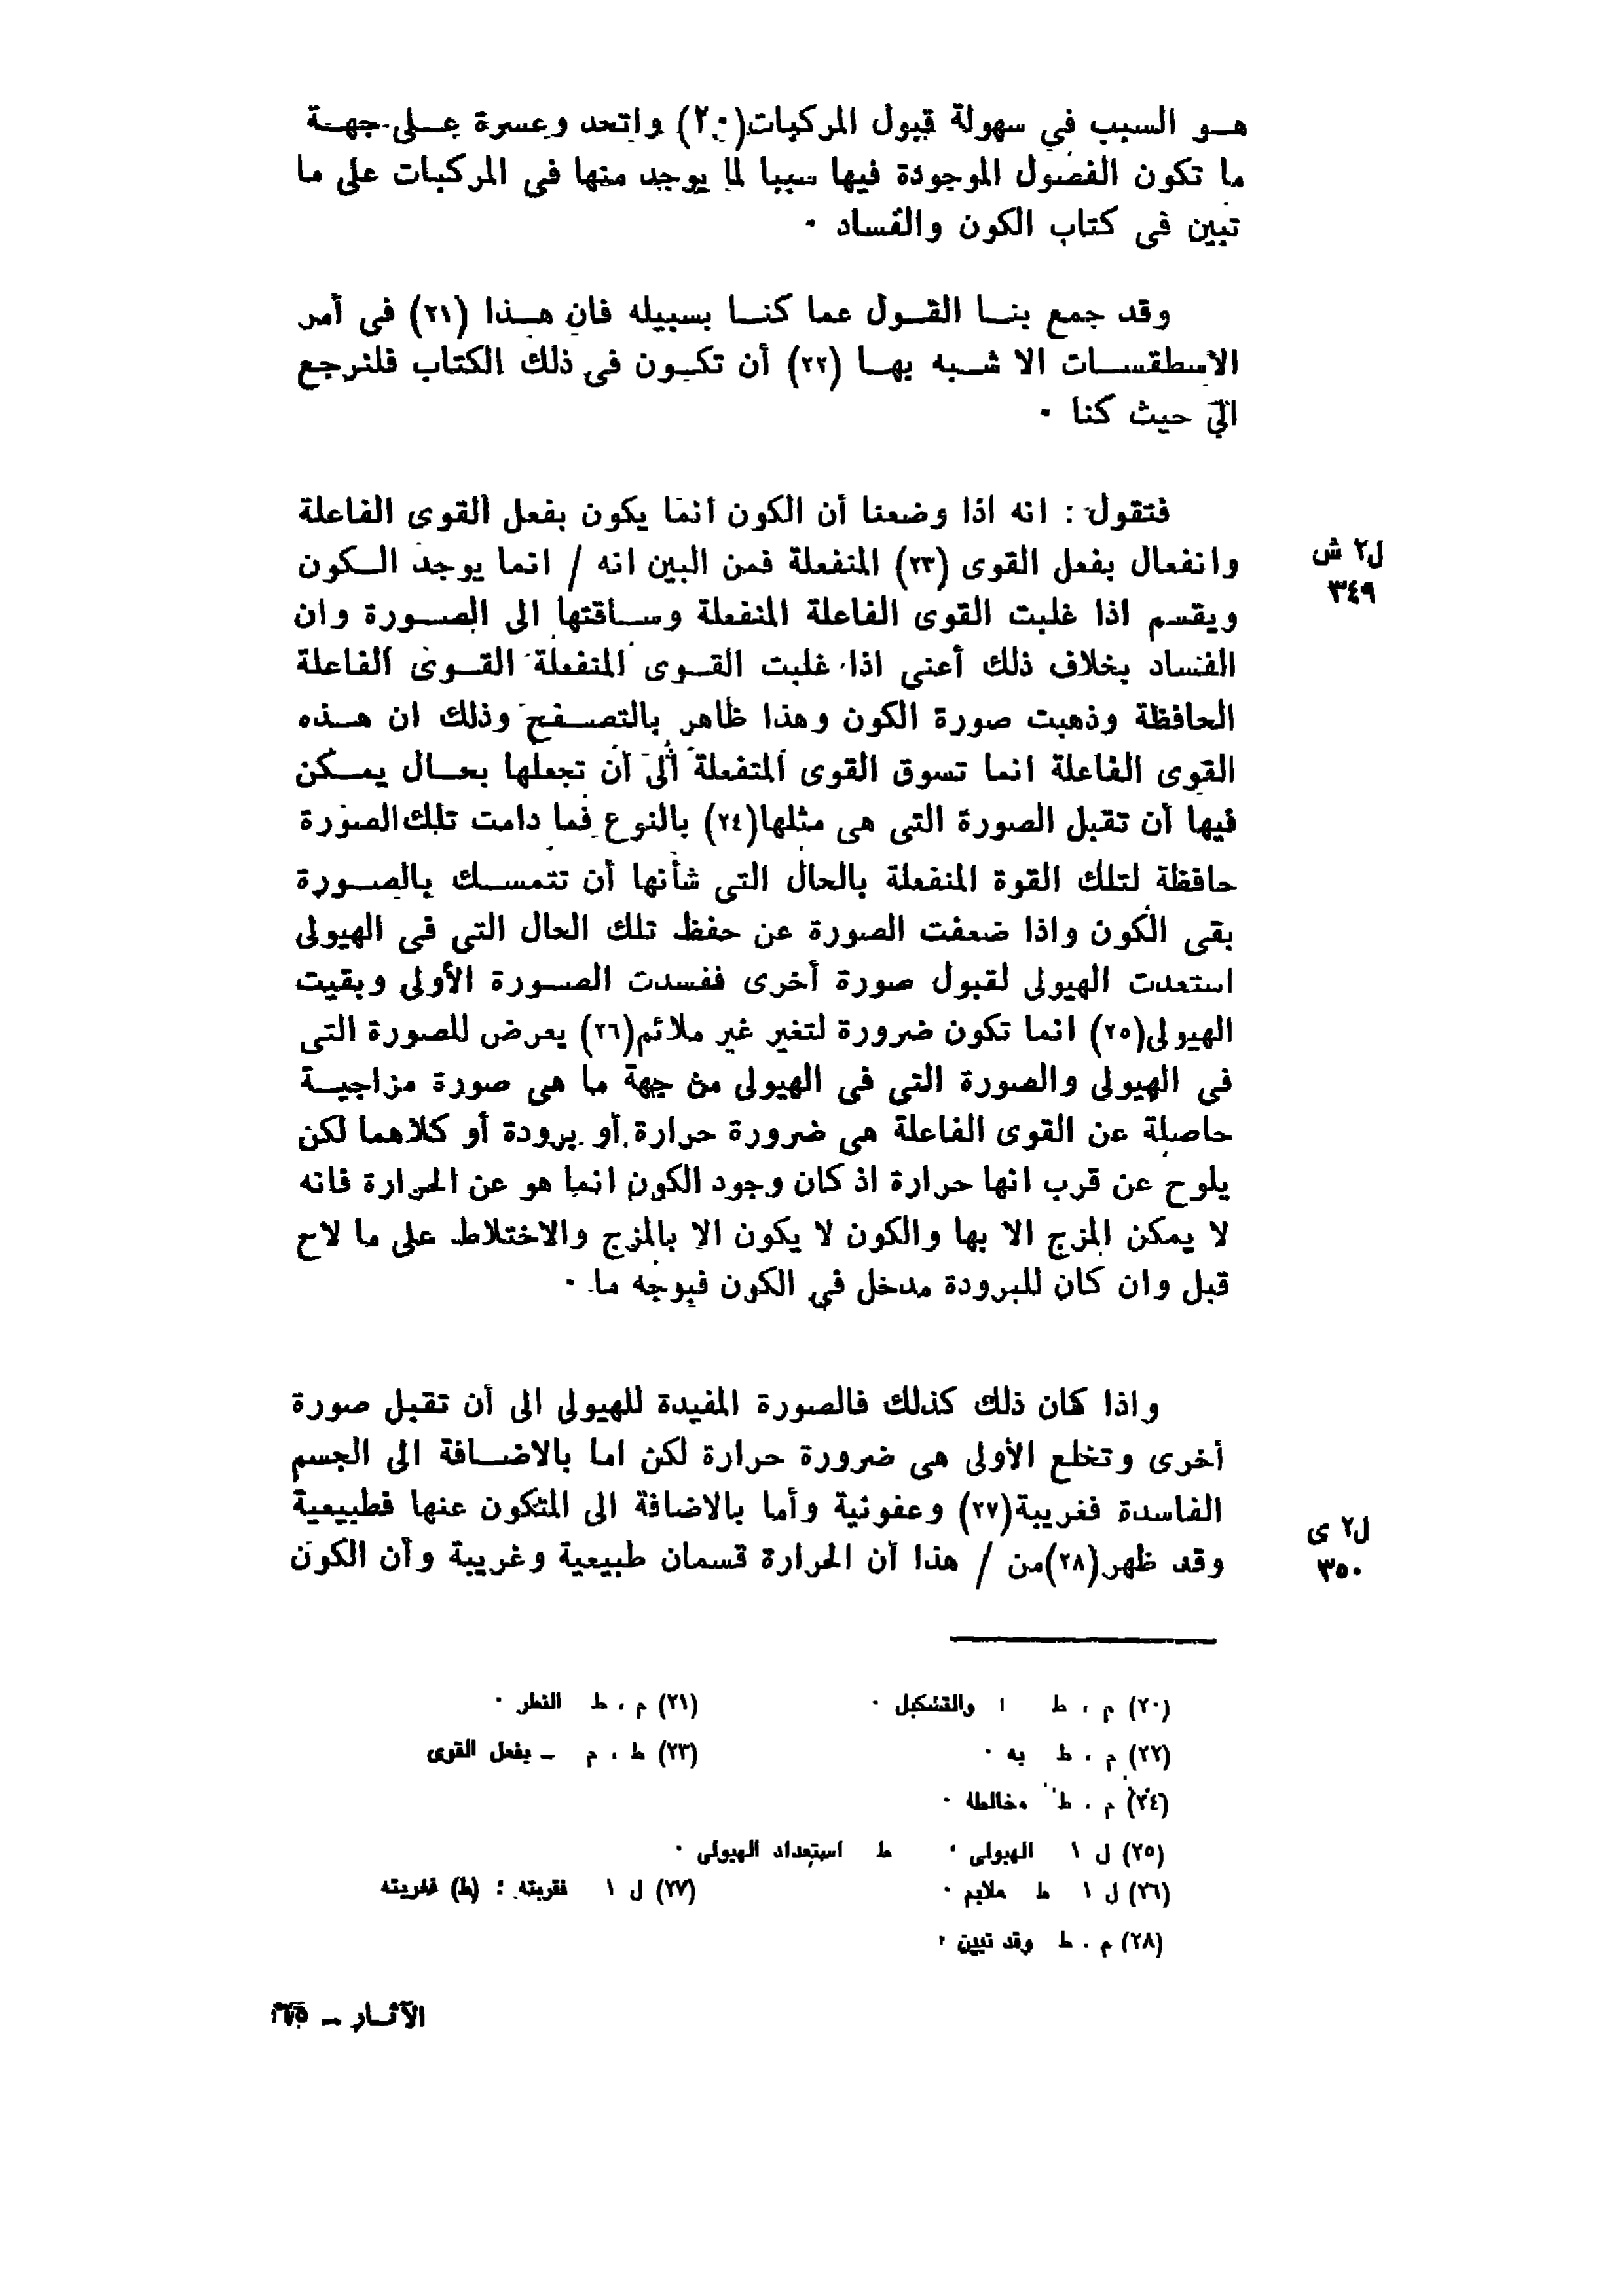 هـو السبب في سهولة قبول المركبات(٢٠) واتحد وعسرة عـلى جهـة
ما تكون الفصول الموجودة فيها سببا لما يوجد منها فى المركبات على ما
تبين فى كتاب الكون والفساد ٠
وقد جمع بنـا القـول عما كنـا بسبيله فان هـذا (٢١) فى أمر
الاسطقسـات الا شـبه بهـا (٢٢) أن تكـون فى ذلك الكتاب فلنرجع
الى حيث كنا ٠
فنقول : انه اذا وضعنا أن الكون انما يكون بفعل القوى الفاعلة
وانفعال بفعل القوى (٢٣) المنفعلة فمن البين انه / انما يوجد الـكون
ل٢ ش
٣٤٩
ويقسم اذا غلبت القوى الفاعلة المنفعلة وسـاقتها الى الصـورة وان
الفساد بخلاف ذلك أعنى اذا غلبت القـوى المنفعلة القـوى الفاعلة
الحافظة وذهبت صورة الكون وهذا ظاهر بالتصـفح وذلك ان هـذه
القوى الفاعلة انما تسوق القوى المتفعلة الى أن تجعلها بحـال يمـكن
فيها أن تقبل الصورة التى هى مثلها(٢٤) بالنوع فما دامت تلك الصورة
حافظة لتلك القوة المنفعلة بالحال التى شأنها أن تتمسـك بالصـورة
بقى الكون واذا ضعفت الصورة عن حفظ تلك الحال التى فى الهيولى
استعدت الهيولى لقبول صورة أخرى ففسدت الصـورة الأولى وبقيت
الهيولى(٢٥) انما تكون ضرورة لتغير غير ملائم(٢٦) يعرض للصورة التى
فى الهيولى والصورة التى فى الهيولى من جهة ما هى صورة مزاجيـة
حاصلة عن القوى الفاعلة هى ضرورة حرارة أو برودة أو كلاهما لكن
يلوح عن قرب انها حرارة اذ كان وجود الكون انما هو عن الحرارة فانه
لا يمكن المزج الا بها والكون لا يكون الا بالمزج والاختلاط على ما لاح
قبل وان كان للبرودة مدخل في الكون فبوجه ما ٠
واذا كان ذلك كذلك فالصورة المفيدة للهيولى الى أن تقبل صورة
أخرى وتخلع الأولى هى ضرورة حرارة لكن اما بالاضـافة الى الجسم
الفاسدة فغريبة(٢٧) وعفونية وأما بالاضافة الى المتكون عنها فطبيعية
وقد ظهر(٢٨)من / هذا أن الحرارة قسمان طبيعية وغريبة وأن الكون
ل٢ ى
٣٥٠
(٢٠) م ، ط ا والتشكيل ٠
(٢١) م ، ط النظر ٠
(٢٢) م ، ط به ٠
(٢٣) ط ، م ـ بفعل القوى
(٢٤) م ، ط مخالطة ٠
(٢٥) ل ١ الهبولى ٠ ط استعداد الهبولى ٠
(٢٦) ل ١ ط ملايم ٠
(٢٧) ل ١ فقريته : (ط)
(٢٨) م ، ط وقد تبين ٠
الآثـار ـ